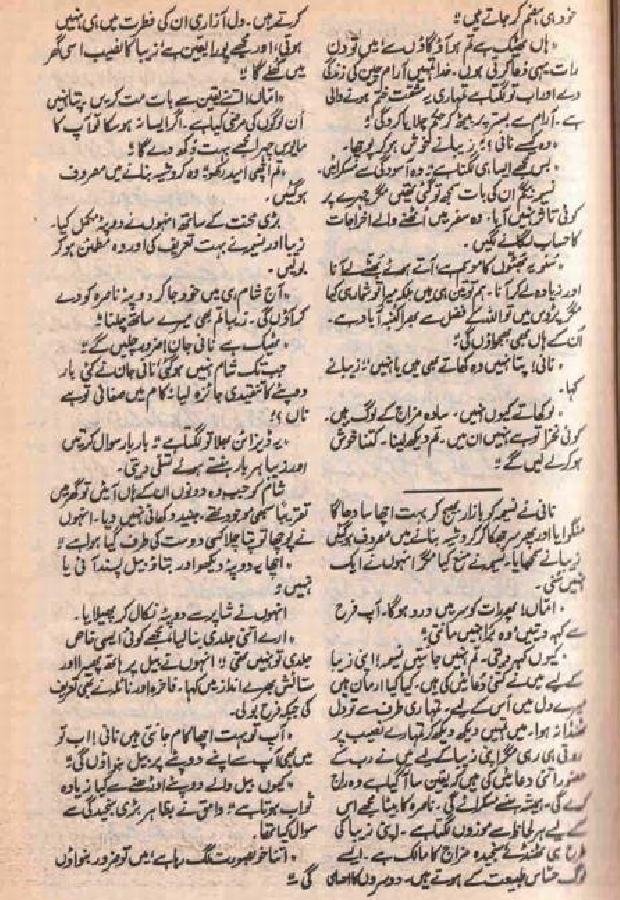 خود ہی ہضم کر جاتے ہیں۔"
"ہاں بھٹک ہے تم ہو آؤ گاؤں سے، میں تو دن
رات یہی دعا کرتی ہوں۔ خدا تمہیں آرام چین کی زندگی
دے اور اب تو لگتا ہے تمہاری یہ مشقت ختم ہونے والی
ہے۔ آرام سے بستر پر بیٹھ کر حکم چلایا کرو گی۔"
"وہ کیسے نانی!" زیبا نے خوش ہو کر پوچھا۔
"بس مجھے ایسا ہی لگتا ہے۔" وہ آسودگی سے مسکرائیں۔
نسیمہ بیگم ان کی بات سمجھ تو گئی تھیں مگر چہرے پر
کوئی تاثر نہیں آیا۔ وہ سفر میں اٹھنے والے اخراجات
کا حساب لگانے لگیں۔
"سنو یہ بھٹوں کا موسم ہے، آتے ہوئے بھٹے لے آنا
اور زیادہ لے کر آنا۔ ہم تو تین ہی ہیں جبکہ میرا تو شمار ہی کیا
مگر پڑوس میں تو اللہ کے فضل سے بھرا کنبہ آباد ہے۔
ان کے ہاں بھی بھجواؤں گی۔"
"نانی! پتا نہیں وہ کھاتے بھی ہیں یا نہیں؟" زیبا نے
کہا۔
"لو کھاتے کیوں نہیں، سادہ مزاج کے لوگ ہیں۔
کوئی نخرا تو ہے نہیں ان میں۔ تم دیکھ لینا۔ کتنا خوش
ہو کر لیں گے۔"
نانی نے نسیمہ کو بازار بھیج کر بہت اچھا سا دھاگا
منگوایا اور پھر سر جھکا کر کروشیہ بنانے میں مصروف ہو گئیں
زیبا نے سمجھایا۔ نسیمہ نے منع کیا مگر انہوں نے ایک
نہیں سنی۔
"اماں! پھر رات کو سر میں درد ہو گا۔ آپ فرح
سے کہہ دیتیں، وہ برا نہیں مانتی۔"
"کیوں کہہ دیتی۔ تم نہیں جانتیں نسیمہ! اپنی زیبا
کے لیے میں نے کتنی دعائیں کی ہیں۔ کیا کیا ارمان ہیں
میرے دل میں اس کے لیے۔ تمہاری طرف سے تو دل
ٹھنڈا نہ ہوا۔ میں تمہیں دیکھ دیکھ کر تمہارے نصیب پر
روتی ہی رہی مگر اپنی زیبا کے لیے میں نے رب کے
حضور اتنی دعائیں کی ہیں کہ یقین سا آ گیا ہے وہ راج
کرے گی۔ ہمیشہ ہنسے مسکرائے گی۔ نامرہ کا بیٹا مجھے اس
کے لیے ہر لحاظ سے موزوں لگتا ہے۔ اپنی زیبا کی
طرح ہی ٹھنڈے سنجیدہ مزاج کا مالک ہے۔ ایسے
لوگ حساس طبیعت کے ہوتے ہیں۔ دوسروں کا احساس
کرتے ہیں۔ دل آزاری ان کی فطرت میں ہی نہیں
ہوتی، اور مجھے پورا یقین ہے زیبا کا نصیب اسی گھر
میں کھلے گا۔"
"اماں! اتنے یقین سے بات مت کریں پتا نہیں
ان لوگوں کی مرضی کیا ہے۔ اگر ایسا نہ ہو سکا تو آپ کا
مایوس چہرا مجھے بہت دکھ دے گا۔"
"تم اچھی امید رکھو۔" وہ کروشیہ بنانے میں مصروف
ہو گئیں۔
بڑی محنت کے ساتھ انہوں نے دوپٹہ مکمل کیا۔
زیبا اور نسیمہ نے بہت تعریف کی اور وہ مطمئن ہو کر
بولیں۔
"آج شام ہی میں خود جا کر دوپٹہ نامرہ کو دے
کر آؤں گی۔ زیبا تم بھی میرے ساتھ چلنا۔"
"ٹھیک ہے نانی جان! ضرور چلیں گے۔"
جب تک شام نہیں ہو گئی نانی جان نے کئی بار
دوپٹے کا تنقیدی جائزہ لیا۔ "کام میں صفائی تو ہے
ناں!"
"یہ ڈیزائن بھلا تو لگتا ہے۔" بار بار سوال کرتیں
اور زیبا ہر بار ہنستے ہوئے تسلی دیتی۔
شام کو جب وہ دونوں ان کے ہاں آئیں تو گھر میں
تقریباً سبھی موجود تھے، جنید دکھائی نہیں دیا۔ انہوں
نے پوچھا تو پتا چلا کسی دوست کی طرف گیا ہوا ہے۔
"اچھا یہ دوپٹہ دیکھو اور بتاؤ بیل پسند آئی یا
نہیں؟"
انہوں نے شاپر سے دوپٹہ نکال کر پھیلایا۔
"ارے اتنی جلدی بنا لیا، مجھے کوئی ایسی خاص
جلدی تو نہیں تھی۔" انہوں نے بیل پر ہاتھ پھیرا اور
ستائش بھرے انداز میں کہا۔ فاخرہ اور نائلہ نے بھی تعریف
کی جبکہ فرح بولی۔
"آپ تو بہت اچھا کام جانتی ہیں نانی! اب تو
میں بھی آپ سے اپنے دوپٹے پر بیل بنواؤں گی۔"
"کیوں بیل والے دوپٹے اوڑھنے سے کیا زیادہ
ثواب ہوتا ہے۔" واثق نے بظاہر بڑی سنجیدگی سے
سوال کیا تھا۔
"اتنا خوبصورت لگ رہا ہے، میں تو ضرور بنواؤں
گی۔"